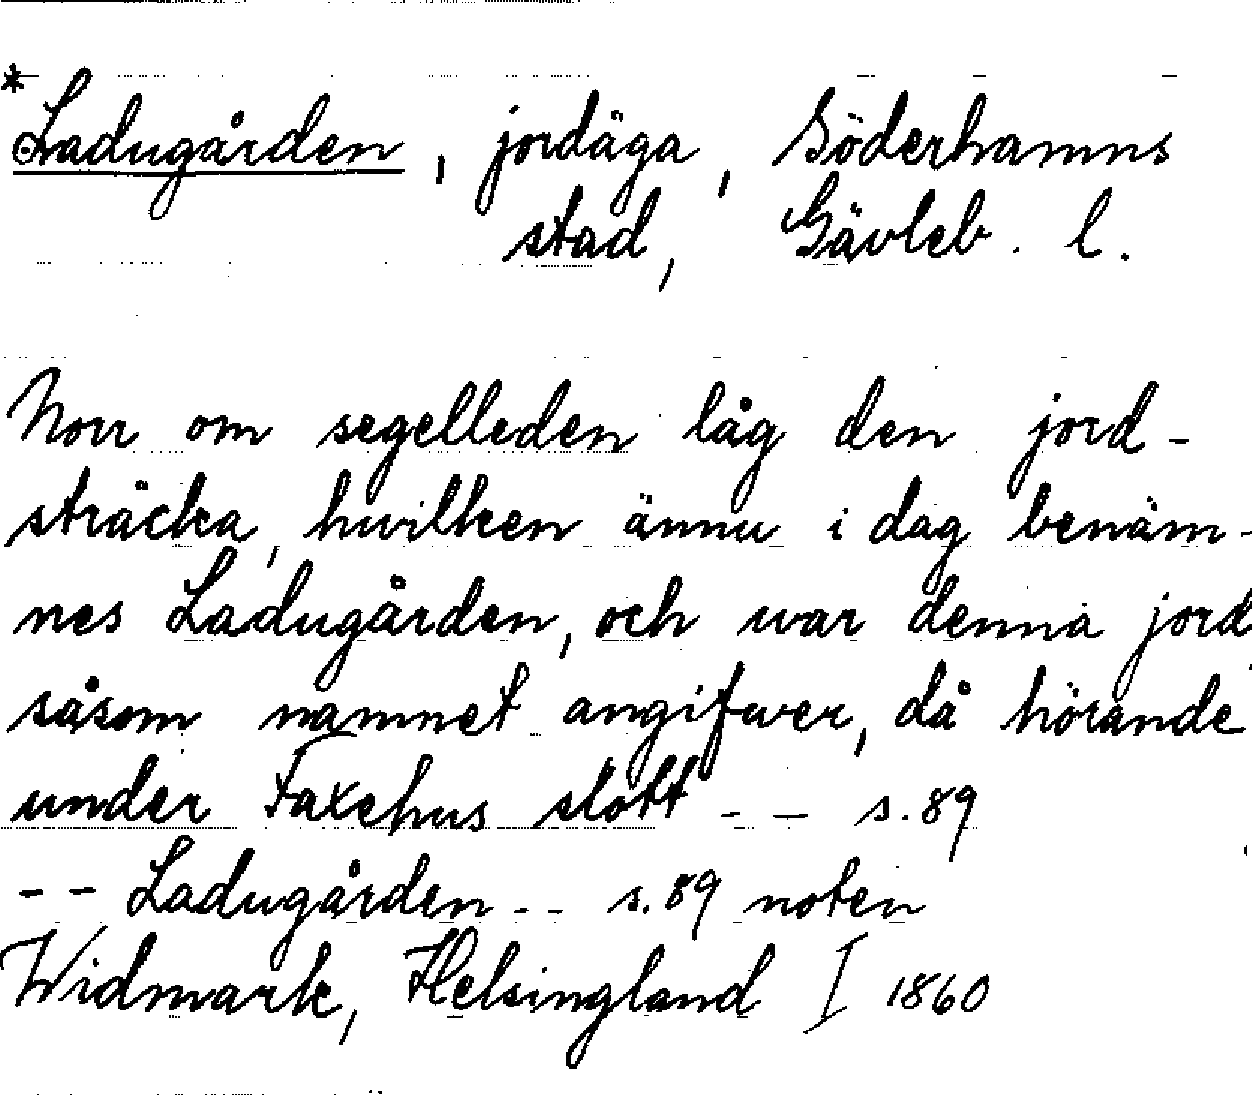 *Ladugården, jordäga, Söderhamns
stad, Gävleb. l.
Norr om segelleden låg den jord-
sträcka, hvilken ännu i dag benäm-
nes Ladugården, och war denna jord
såsom namnet angifwer, då hörande
under Faxehus slott - - s. 89
- - Ladugården - - s. 89 noten
Widmark, Helsingland I 1860